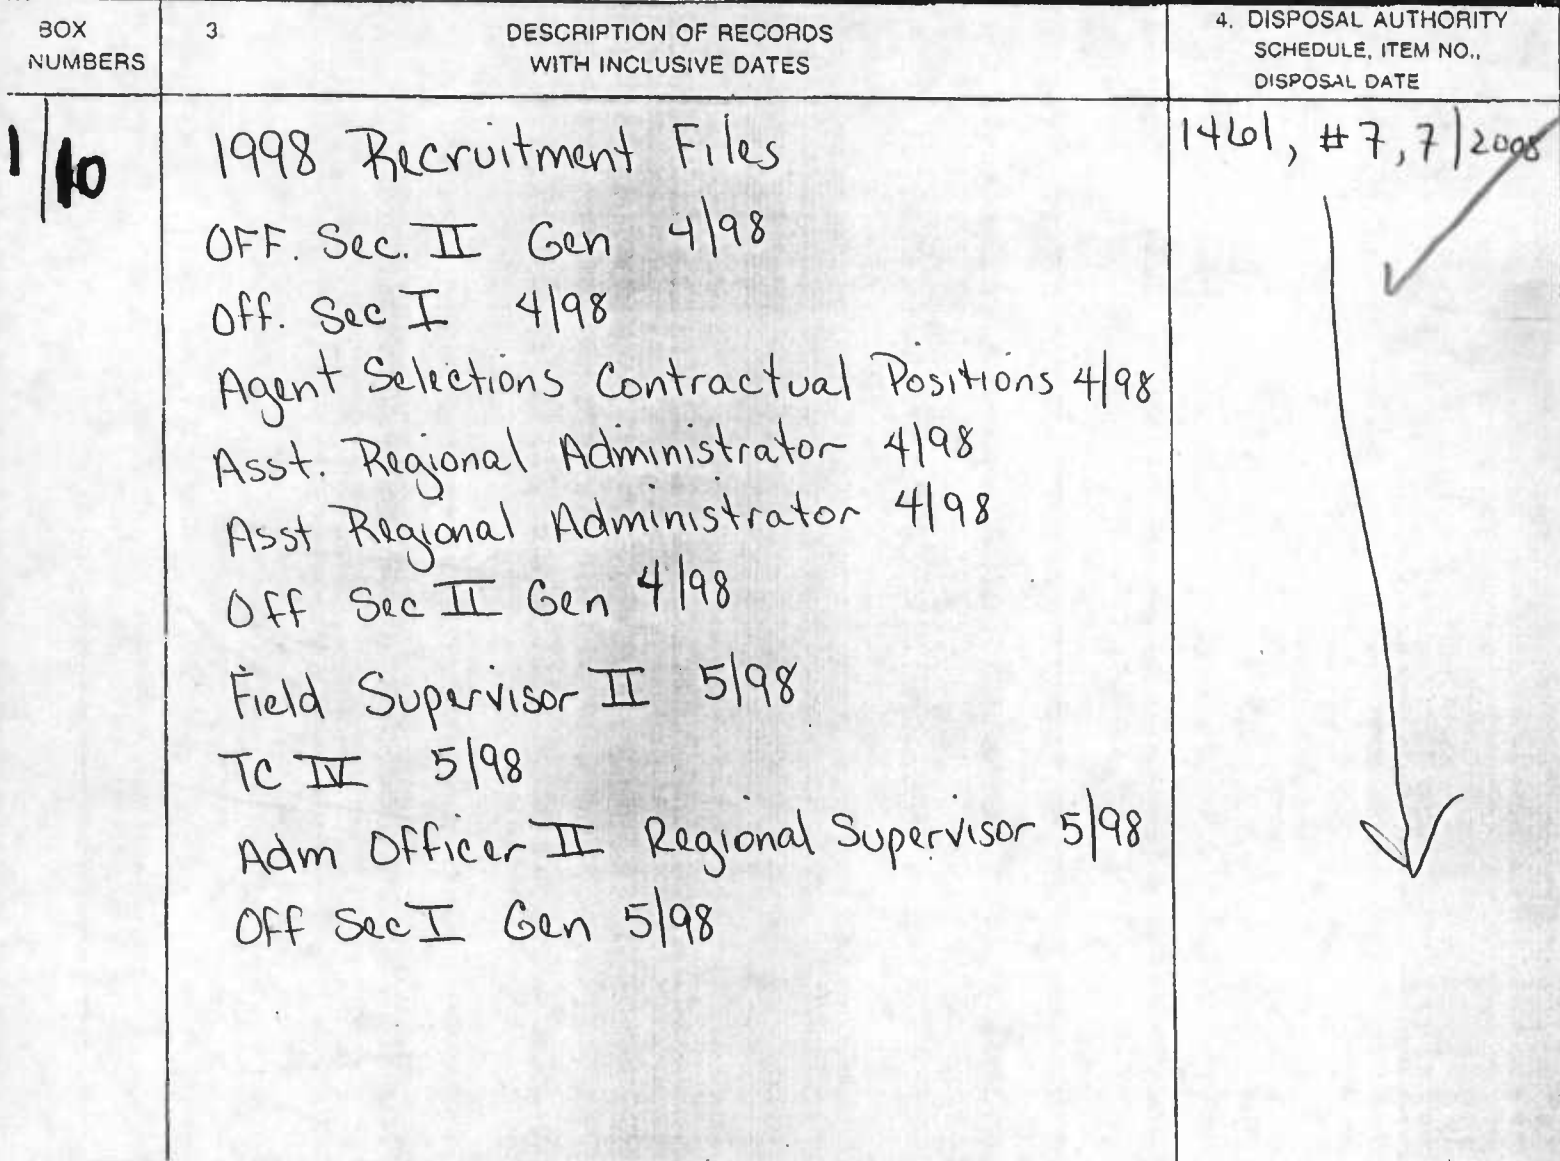 BOX
NUMBERS
3
DESCRIPTION OF RECORDS
WITH INCLUSIVE DATES
4. DISPOSAL AUTHORITY
SCHEDULE, ITEM NO.,
DISPOSAL DATE
1/10
1998 Recruitment Files
1461, #7, 7/2008
OFF. Sec. II Gen 4/98
Off. Sec I 4/98
Agent Selections Contractual Positions 4/98
Asst. Regional Administrator 4/98
Asst Regional Administrator 4/98
Off Sec II Gen 4/98
Field Supervisor II 5/98
TC IV 5/98
Adm Officer II Regional Supervisor 5/98
Off Sec I Gen 5/98